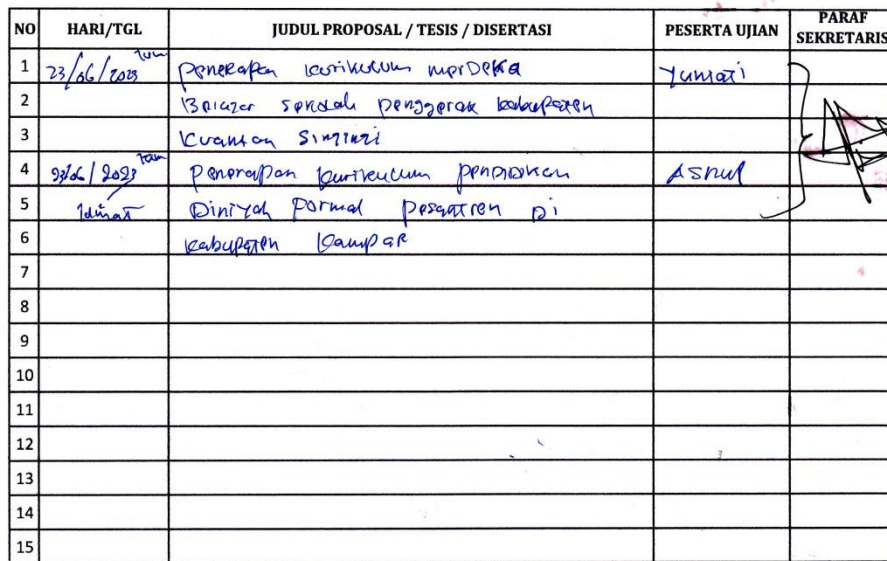 NO HARI/TGL JUDUL PROPOSAL / TESIS / DISERTASI PESERTA UJIAN PARAF SEKRETARIS
1 23/06/2023 Penerapan kurikulum merdeka Yumiati
2 Belajar sekolah penggerak kabupaten
3 Kuantan Singingi
4 23/06/2023 Penerapan kurikulum pendidikan Asrul
5 Jumat Diniyah Formal pesantren Di
6 kabupaten Kampar
7
8
9
10
11
12
13
14
15